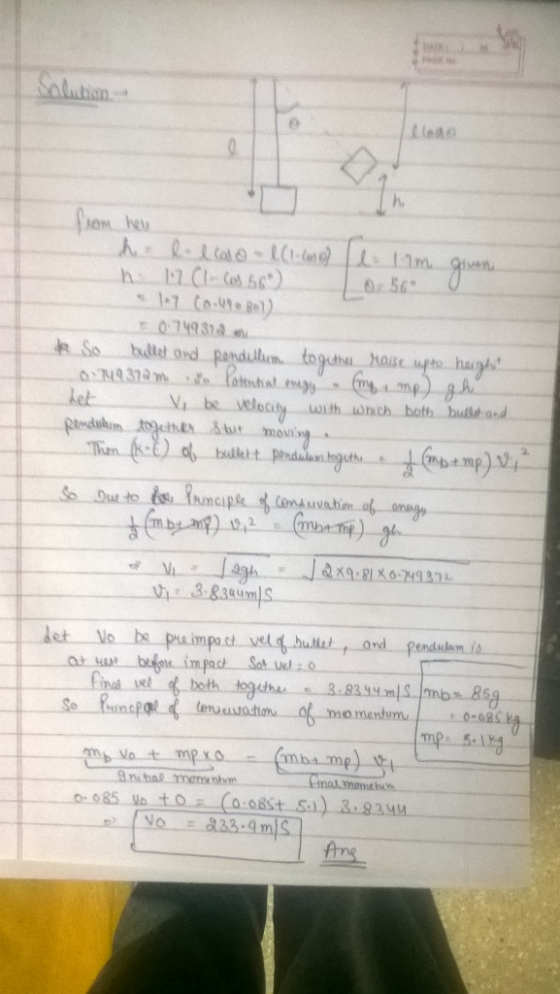 DATE: / / 20
PAGE No.
Solution →
θ
l
l cosθ
h
from here
h = l - l cosθ = l(1-cosθ) [ l = 1.7m given
h = 1.7 (1-cos 56°) θ = 56°
= 1.7 (0.440807)
= 0.749372 m
So bullet and pendulum together raise upto height
0.749372 m. so Potential enegy = (mb + mp) gh
Let V1 be velocity with which both bullet and
pendulum together start moving.
Then (K-E) of bullet + pendulum togeth = 1/2 (mb+mp) V1²
So Due to Principle of conservation of energy
1/2 (mb+mp) v1² = (mb+mp) gh
⇒ V1 = √2gh = √2×9.81×0.749372
V1 = 3.8344 m/s
Let Vo be preimpact vel of bullet, and pendulum is
at rest before impact So vel = 0
final vel of both together = 3.8344 m/s
mb = 85g
So Principal of conservation of momentum
= 0.085 kg
mp = 5.1 kg
mb vo + mp x 0 = (mb+mp) v1
initial momentum final momentum
0.085 vo + 0 = (0.085 + 5.1) 3.8344
⇒ vo = 233.9 m/s
Ans